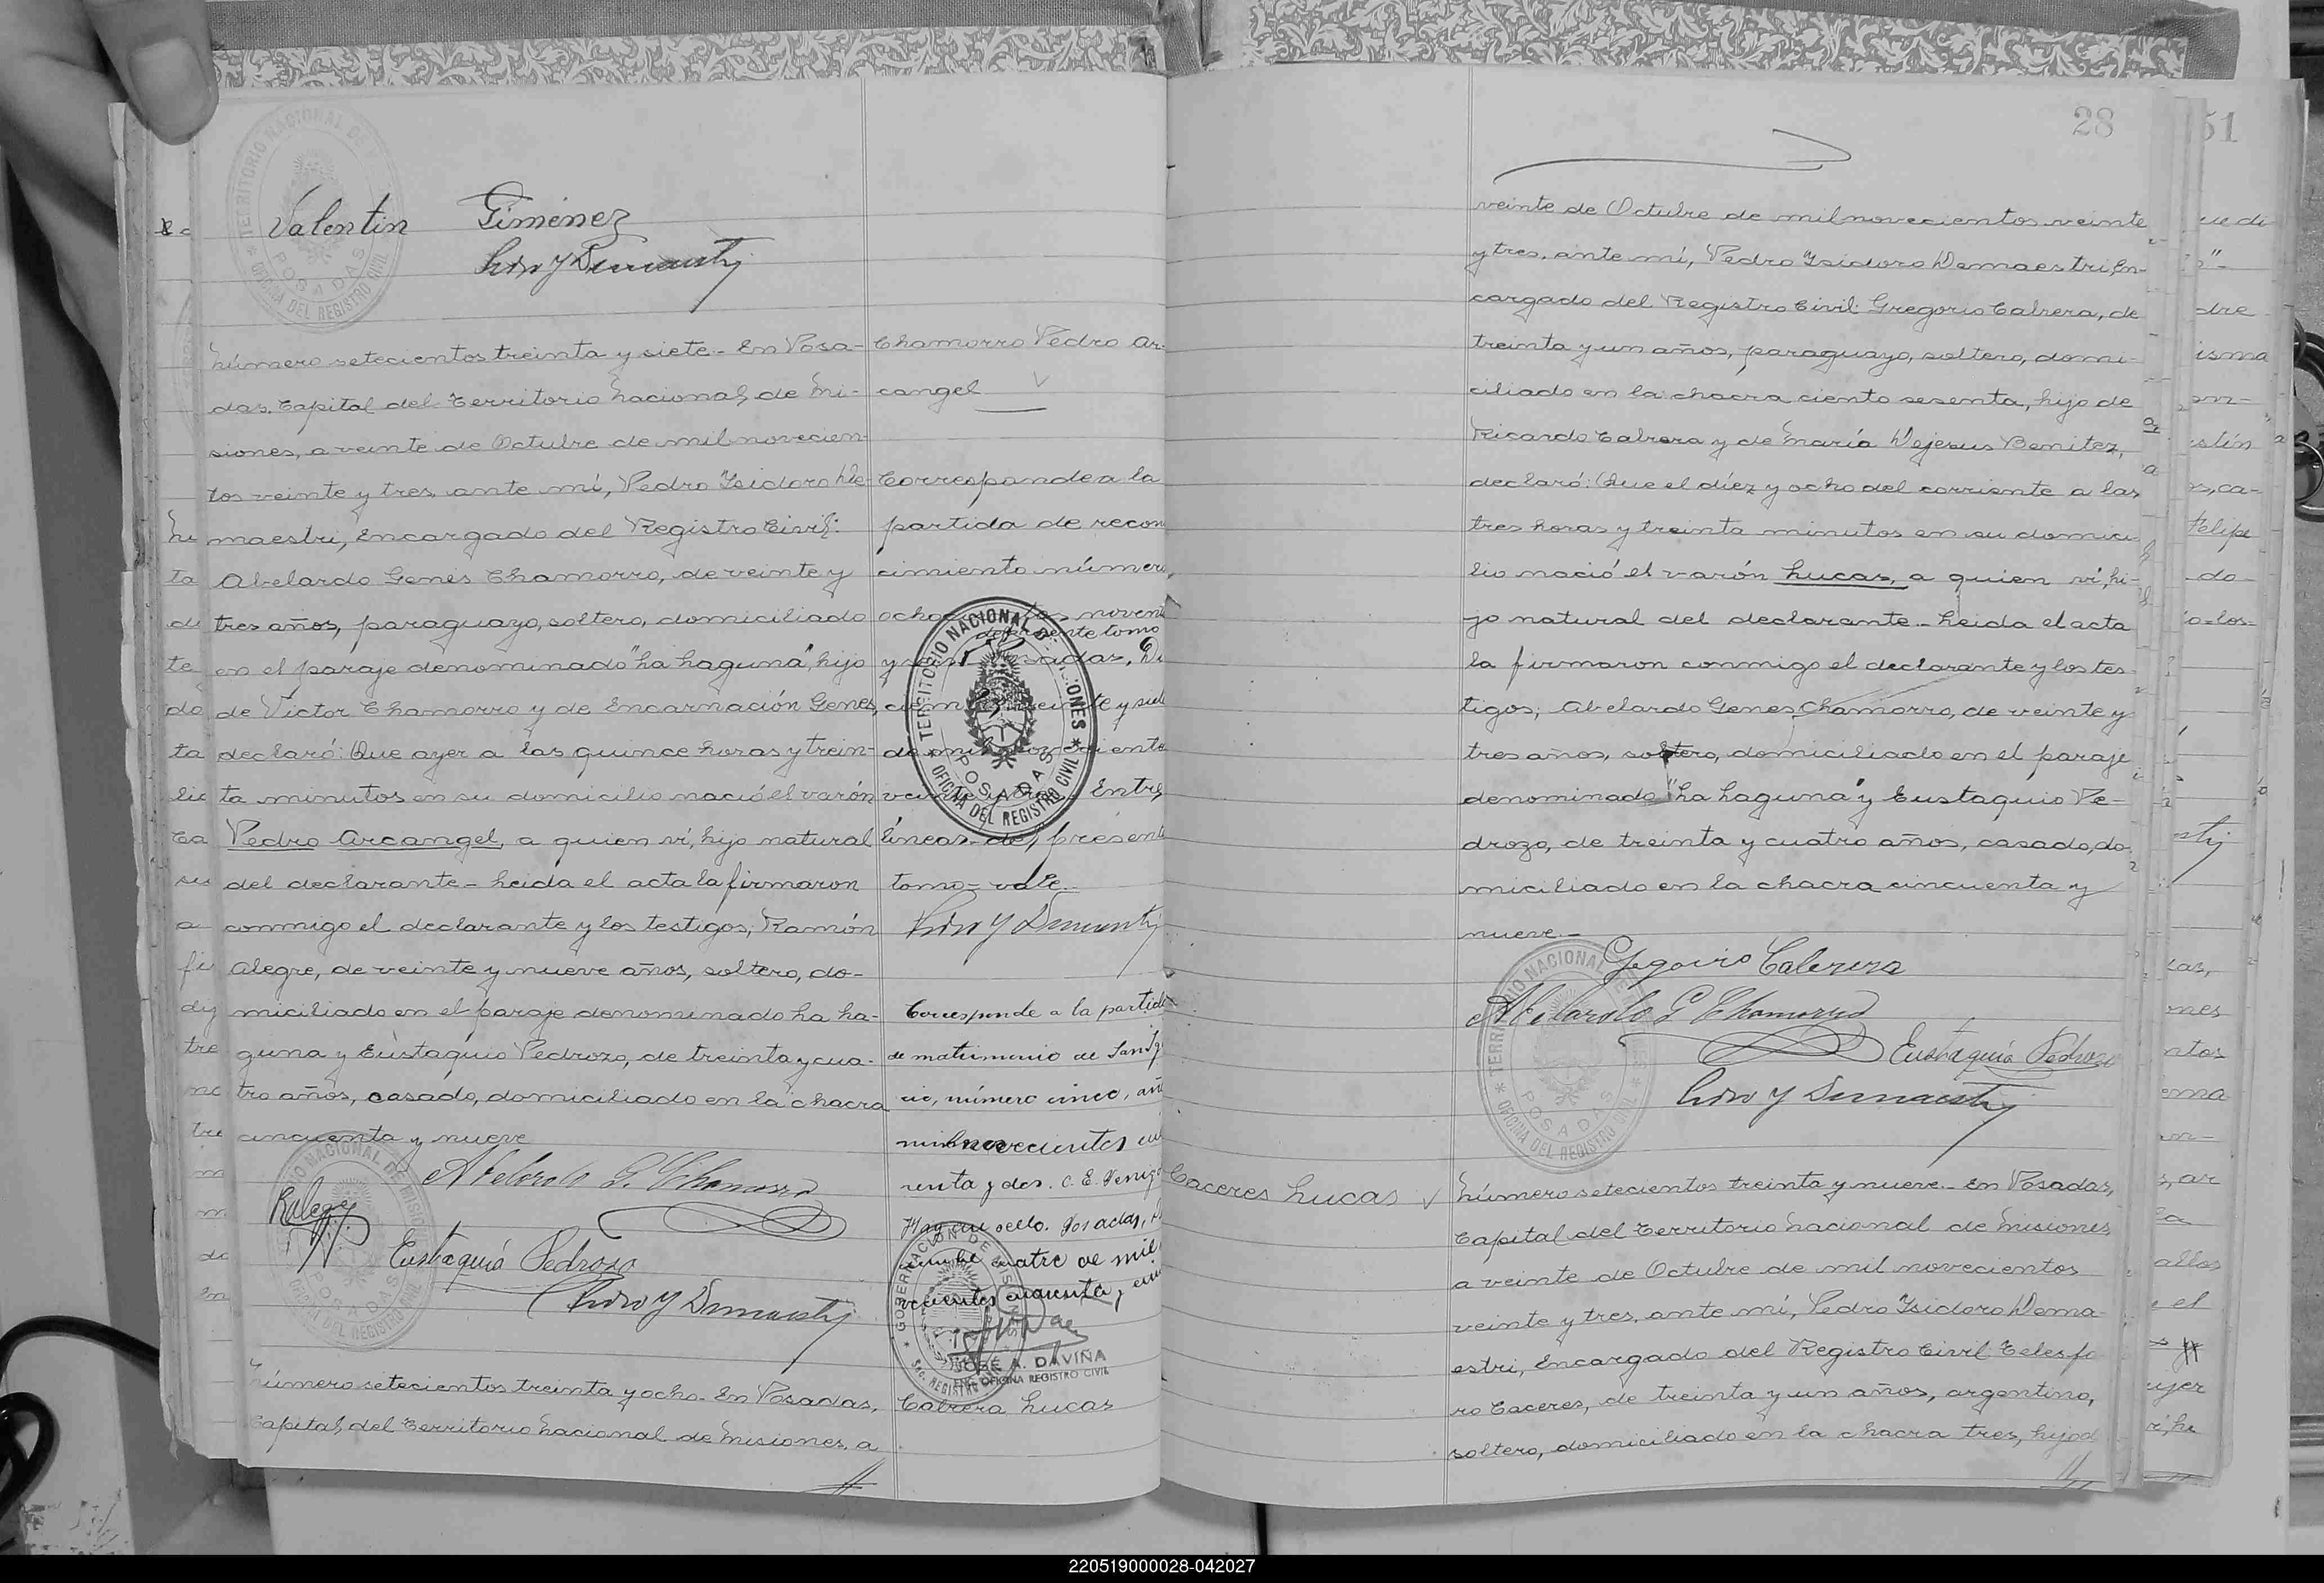 Valentin Gimenez
Número setecientos treinta y siete.- En Posa-
das, Capital del Territorio Nacional de Mi-
siones, a veinte de Octubre de mil novecien-
tos veinte y tres, ante mí, Pedro Isidoro De-
maestri, Encargado del Registro Civil:
Abelardo Genes Chamorro, de veinte y
tres años, paraguayo, soltero, domiciliado
en el paraje denominado "La Laguna", hijo
de Victor Chamorro y de Encarnación Genes,
declaró: Que ayer a las quince horas y trein-
ta minutos en su domicilio nació el varón
Pedro Arcangel, a quien ví, hijo natural
del declarante - Leida el acta la firmaron
conmigo el declarante y los testigos, Ramón
Alegre, de veinte y nueve años, soltero, do-
miciliado en el paraje denominado La La-
guna y Eustaquio Pedrozo, de treinta y cua-
tro años, casado, domiciliado en la chacra
cincuenta y nueve
Abelardo G. Chamorro
Ralegre
Eustaquio Pedrozo
Pedro Y Demaestri
Número setecientos treinta y ocho.- En Posadas,
Capital del Territorio Nacional de Misiones, a
Chamorro Pedro Ar-
cangel
Corresponde a la
partida de recon
cimiento númer
noventa
del presente tomo
Posadas, Di
veinte y siete
de mil novecientos
veinte Entre
lineas - del presente
tomo = vale.-
Pedro Y Demaestri
Corresponde a la partida
de matrimonio de San Ig
cio, número cinco, año
mil novecientos cua
renta y dos. C. E.
Hay un sello. Posadas,
cuatro de mil
vecientos cuarenta y
JOSÉ A. DAVIÑA
ENC. OFICINA REGISTRO CIVIL
Cabrera Lucas
TERRITORIO NACIONAL DE MISIONES
OFICINA DEL REGISTRO CIVIL
POSADAS
28
51
veinte de Octubre de mil novecientos veinte
y tres, ante mí, Pedro Isidoro Demaestri, En-
cargado del Registro Civil: Gregorio Cabrera, de
treinta y un años, paraguayo, soltero, domi-
ciliado en la chacra ciento sesenta, hijo de
Ricardo Cabrera y de María Dejesus Benitez,
declaró: Que el diez y ocho del corriente a las
tres horas y treinta minutos en su domici-
lio nació el varón Lucas, a quien ví, hi-
jo natural del declarante - Leida el acta
la firmaron conmigo el declarante y los tes-
tigos, Abelardo Genes Chamorro, de veinte y
tres años, soltero, domiciliado en el paraje
denominado "La Laguna" y Eustaquio Pe-
drozo, de treinta y cuatro años, casado, do-
miciliado en la chacra cincuenta y
nueve.-
Gregorio Cabrera
Abelardo G Chamorro
Eustaquio Pedrozo
Pedro Y Demaestri
Caceres Lucas
Número setecientos treinta y nueve.- En Posadas,
Capital del Territorio Nacional de Misiones,
a veinte de Octubre de mil novecientos
veinte y tres, ante mí, Pedro Isidoro Dema-
estri, Encargado del Registro Civil: Telesfo
ro Caceres, de treinta y un años, argentino,
soltero, domiciliado en la chacra tres, hijo d
220519000028-042027